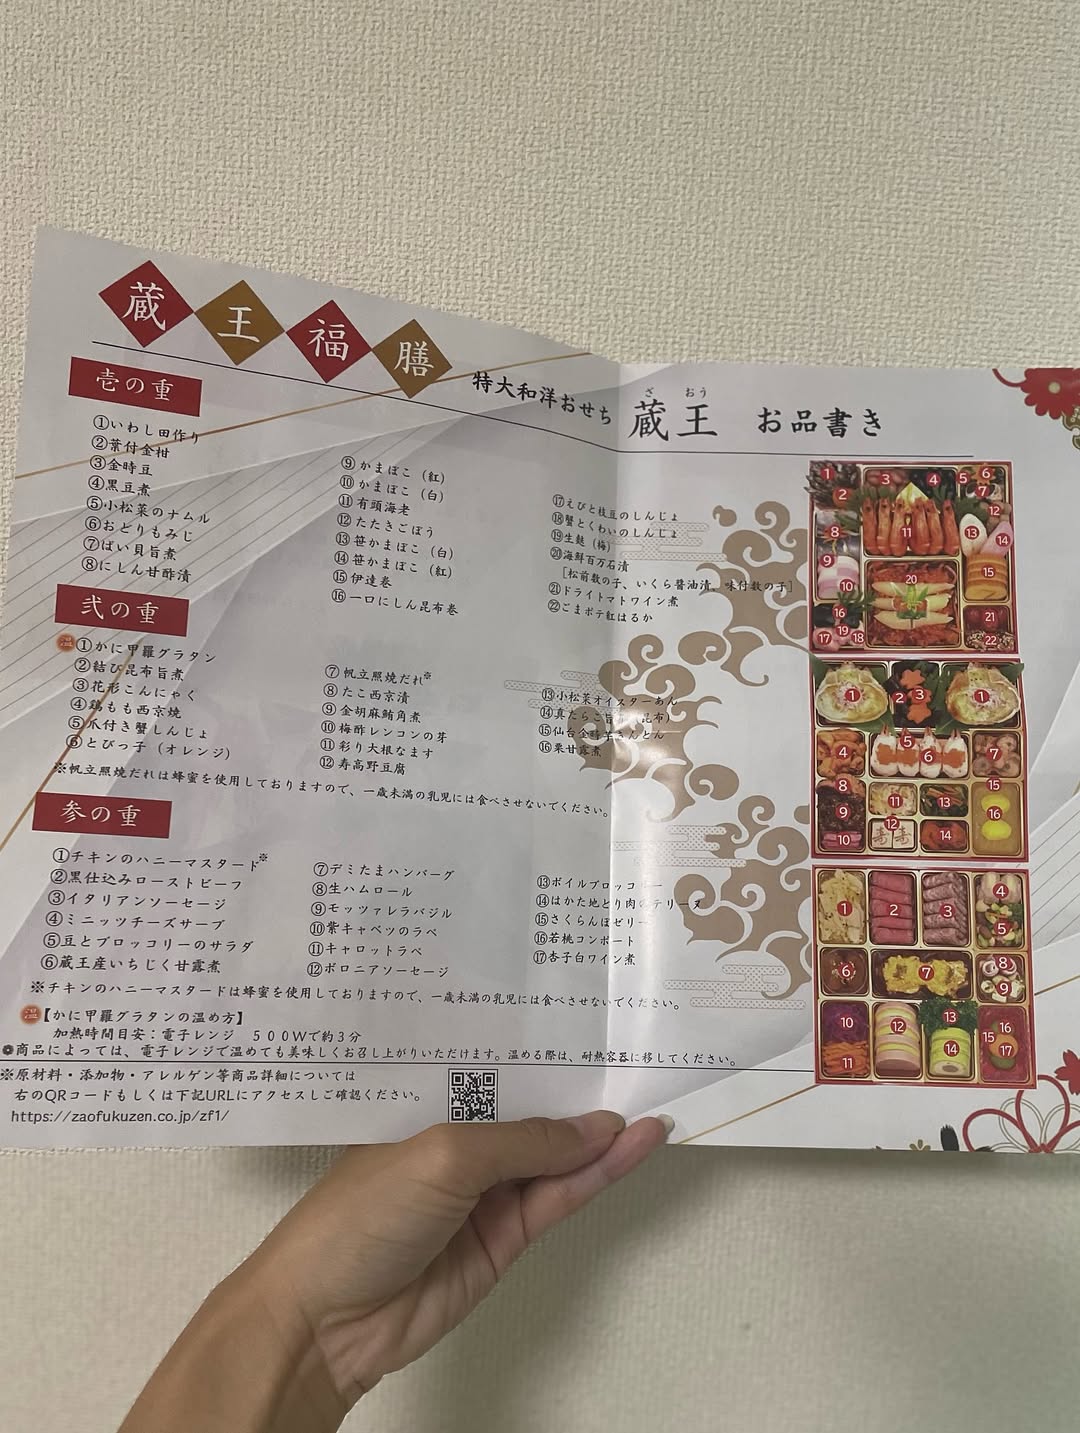 蔵王福膳
特大和洋おせち 蔵王 お品書き
ざ おう
壱の重
①いわし田作り
②葉付金柑
③金時豆
④黒豆煮
⑤小松菜のナムル
⑥おどりもみじ
⑦ばい貝旨煮
⑧にしん甘酢漬
⑨かまぼこ（紅）
⑩かまぼこ（白）
⑪有頭海老
⑫たたきごぼう
⑬笹かまぼこ（白）
⑭笹かまぼこ（紅）
⑮伊達巻
⑯一口にしん昆布巻
⑰えびと枝豆のしんじょ
⑱蟹とくわいのしんじょ
⑲生麩（梅）
⑳海鮮百万石漬
［松前数の子、いくら醤油漬、味付数の子］
㉑ドライトマトワイン煮
㉒ごまポテ紅はるか
弐の重
温①かに甲羅グラタン
②結び昆布旨煮
③花形こんにゃく
④鶏もも西京焼
⑤爪付き蟹しんじょ
⑥とびっ子（オレンジ）
⑦帆立照焼だれ※
⑧たこ西京漬
⑨金胡麻鮪角煮
⑩梅酢レンコンの芽
⑪彩り大根なます
⑫寿高野豆腐
⑬小松菜オイスターあん
⑭真たらこ旨煮（昆布）
⑮仙台金時芋きんとん
⑯栗甘露煮
※帆立照焼だれは蜂蜜を使用しておりますので、一歳未満の乳児には食べさせないでください。
参の重
①チキンのハニーマスタード※
②黒仕込みローストビーフ
③イタリアンソーセージ
④ミニッツチーズサーブ
⑤豆とブロッコリーのサラダ
⑥蔵王産いちじく甘露煮
⑦デミたまハンバーグ
⑧生ハムロール
⑨モッツァレラバジル
⑩紫キャベツのラペ
⑪キャロットラペ
⑫ボロニアソーセージ
⑬ボイルブロッコリー
⑭はかた地どり肉のテリーヌ
⑮さくらんぼゼリー
⑯若桃コンポート
⑰杏子白ワイン煮
※チキンのハニーマスタードは蜂蜜を使用しておりますので、一歳未満の乳児には食べさせないでください。
温【かに甲羅グラタンの温め方】
加熱時間目安：電子レンジ ５００Wで約３分
❁商品によっては、電子レンジで温めても美味しくお召し上がりいただけます。温める際は、耐熱容器に移してください。
※原材料・添加物・アレルゲン等商品詳細については
右のQRコードもしくは下記URLにアクセスしご確認ください。
https://zaofukuzen.co.jp/zf1/
1 2 3 4 5 6 7 12 8 11 13 14 9 10 15 20 16 17 19 18 21 22
1 2 3 1 4 5 6 7 8 9 10 11 12 13 14 15 16
1 2 3 4 5 6 7 8 9 10 11 12 13 14 15 16 17